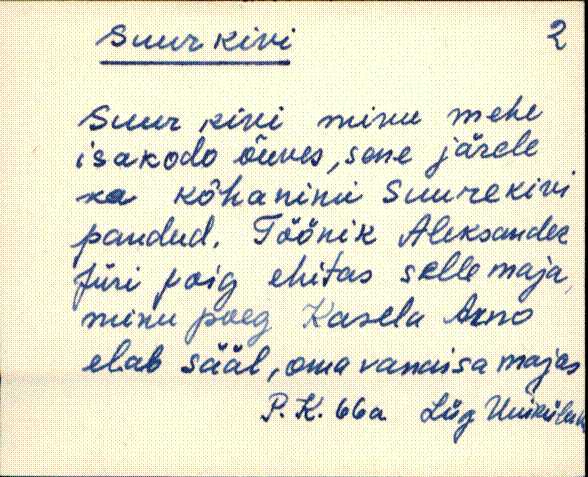 Suur kivi 2
Suur kivi minu mehe
isakodo õuves, sene järele
ka kõhanimi Suurekivi
pandud. Töönik Aleksander
Jüri poig ehitas selle maja,
minu poeg Kasela Arno
elab sääl, oma vanaisa majas
P. K. 66a Lüg Uniküla